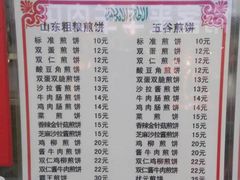 山东粗粮煎饼
标准煎饼 10元
双蛋煎饼 12元
双仁煎饼 12元
酸豆角煎饼 12元
双蛋双脆煎饼 13元
沙拉酱煎饼 13元
牛肉肠煎饼 13元
菜煎饼 15元
香辣金针菇煎饼 15元
芝麻沙拉酱煎饼 15元
鸡柳煎饼 20元
酱牛肉煎饼 20元
双仁鸡柳煎饼 22元
双仁酱牛肉煎饼 22元
霸王煎饼 30元
五谷煎饼
标准煎饼 10元
双蛋煎饼 12元
双仁煎饼 12元
酸豆角煎饼 12元
双蛋双脆煎饼 13元
沙拉酱煎饼 13元
牛肉肠煎饼 13元
菜煎饼 15元
香辣金针菇煎饼 15元
芝麻沙拉酱煎饼 15元
鸡柳煎饼 20元
酱牛肉煎饼 20元
双仁鸡柳煎饼 22元
双仁酱牛肉煎饼 22元
状元煎饼